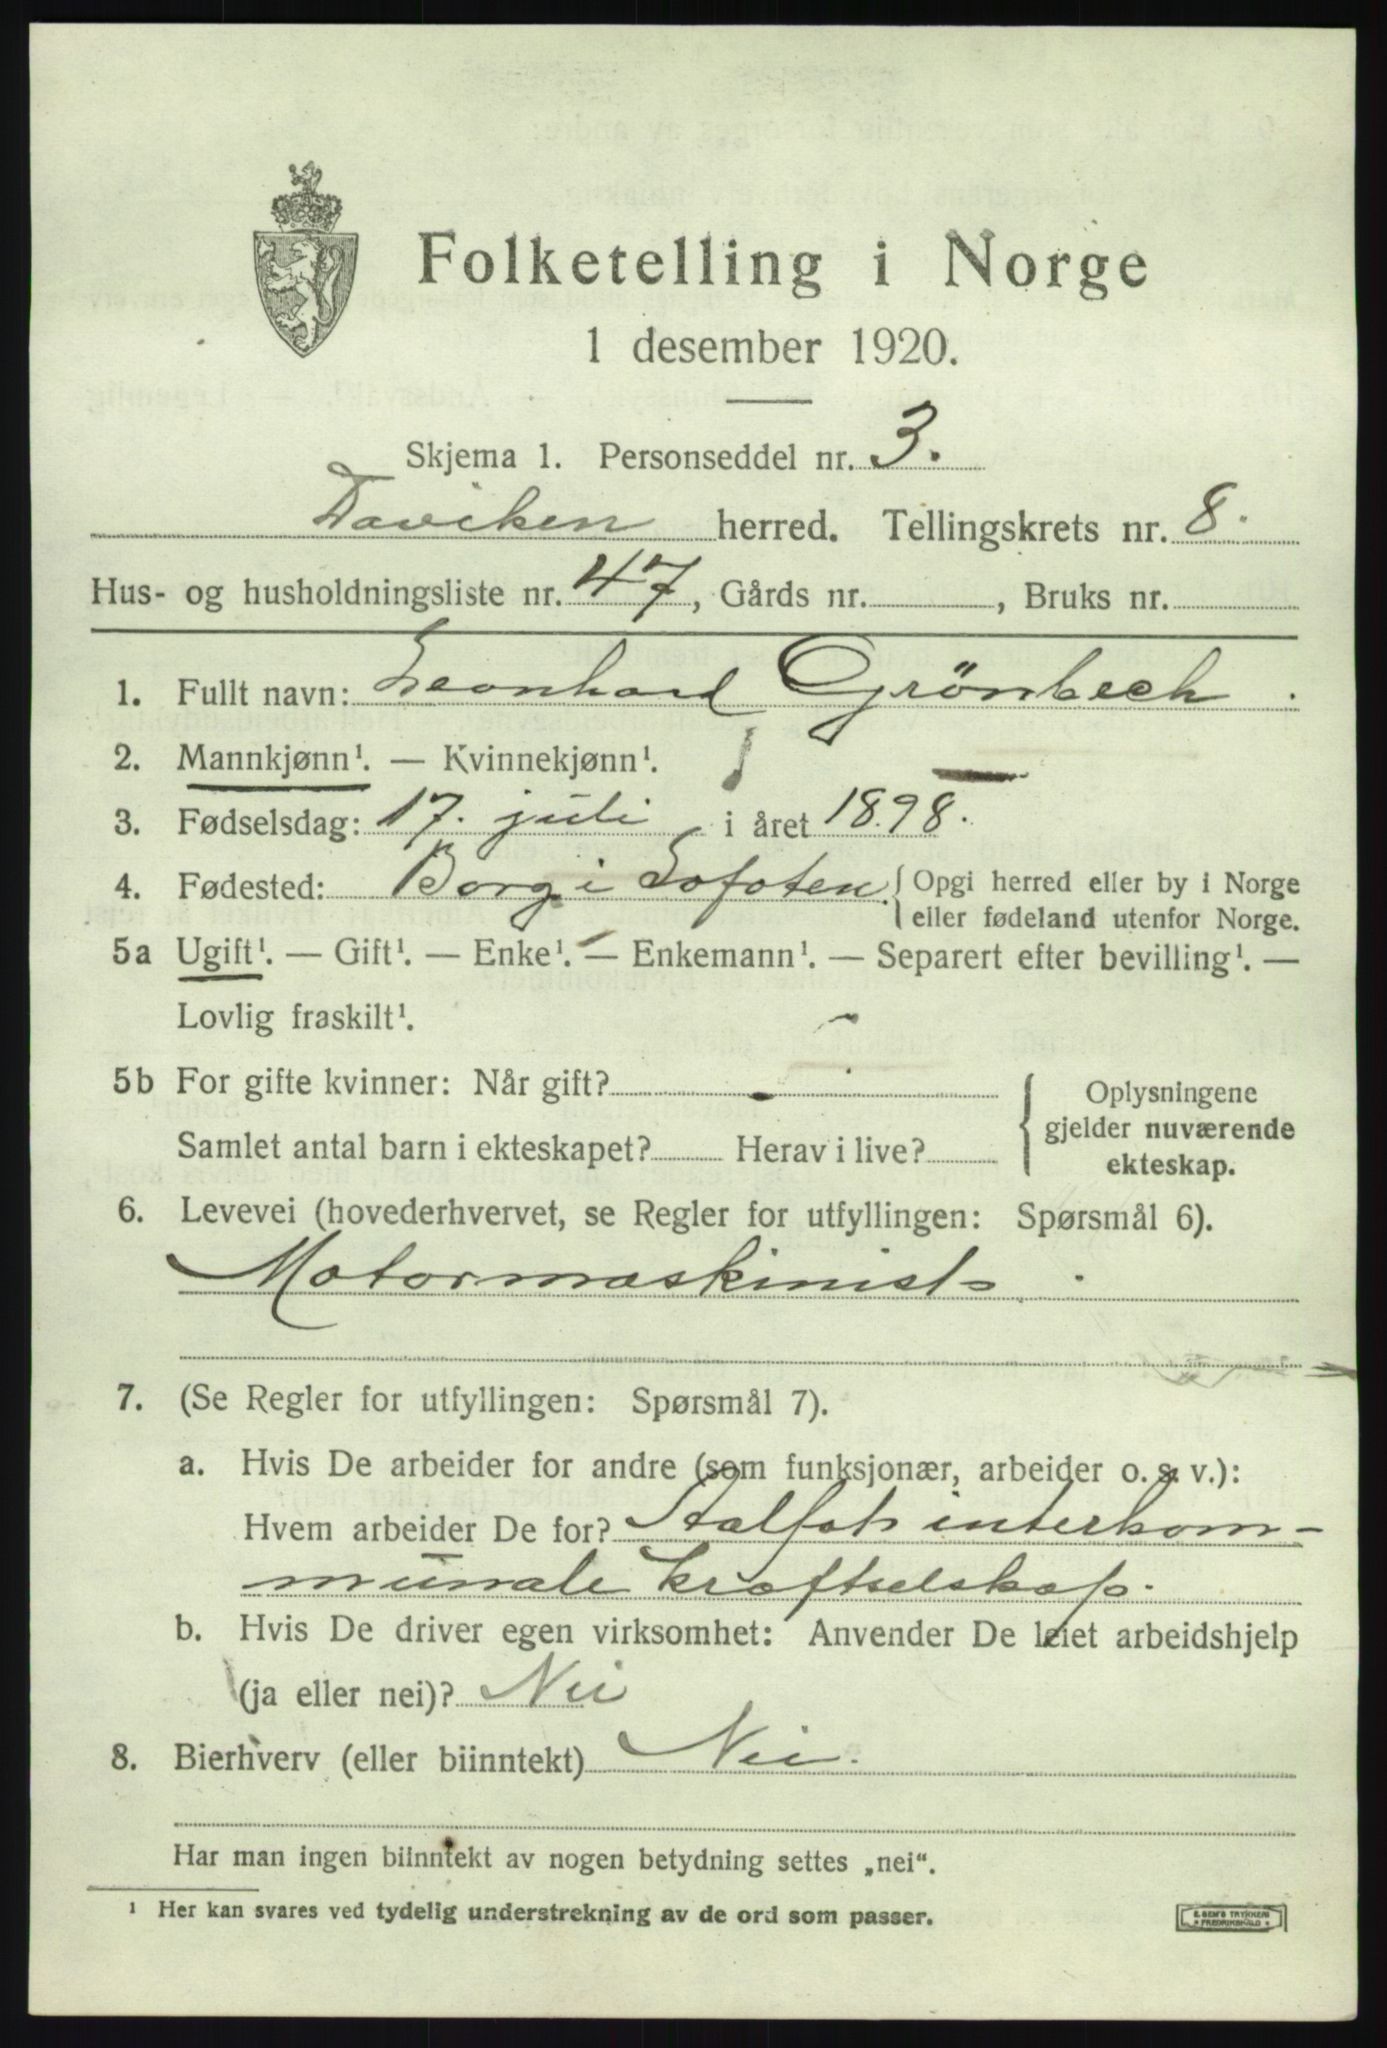 Folketelling i Norge
1 desember 1920.
Skjema 1. Personseddel nr. 3.
Daviken herred. Tellingskrets nr. 8.
Hus- og husholdningsliste nr. 47, Gårds nr. , Bruks nr.
1. Fullt navn: Leonhard Grönbech.
2. Mannkjønn¹. — Kvinnekjønn¹.
3. Fødselsdag: 17. juli i året 1898.
4. Fødested: Borg i Lofoten. { Opgi herred eller by i Norge
eller fødeland utenfor Norge.
5a Ugift¹. — Gift¹. — Enke¹. — Enkemann¹. — Separert efter bevilling¹. —
Lovlig fraskilt¹.
5b For gifte kvinner: Når gift?
Samlet antal barn i ekteskapet? Herav i live?
{ Oplysningene
gjelder nuværende
ekteskap.
6. Levevei (hovederhvervet, se Regler for utfyllingen: Spørsmål 6).
Motormaskinist.
7. (Se Regler for utfyllingen: Spørsmål 7).
a. Hvis De arbeider for andre (som funksjonær, arbeider o. s. v.):
Hvem arbeider De for? Aalfot interkom-
munale kraftselskap.
b. Hvis De driver egen virksomhet: Anvender De leiet arbeidshjelp
(ja eller nei)? Nei
8. Bierhverv (eller biinntekt) Nei.
Har man ingen biinntekt av nogen betydning settes „nei“.
¹ Her kan svares ved tydelig understrekning av de ord som passer.
E. SEM'S TRYKKERI
* FREDRIKSHALD *